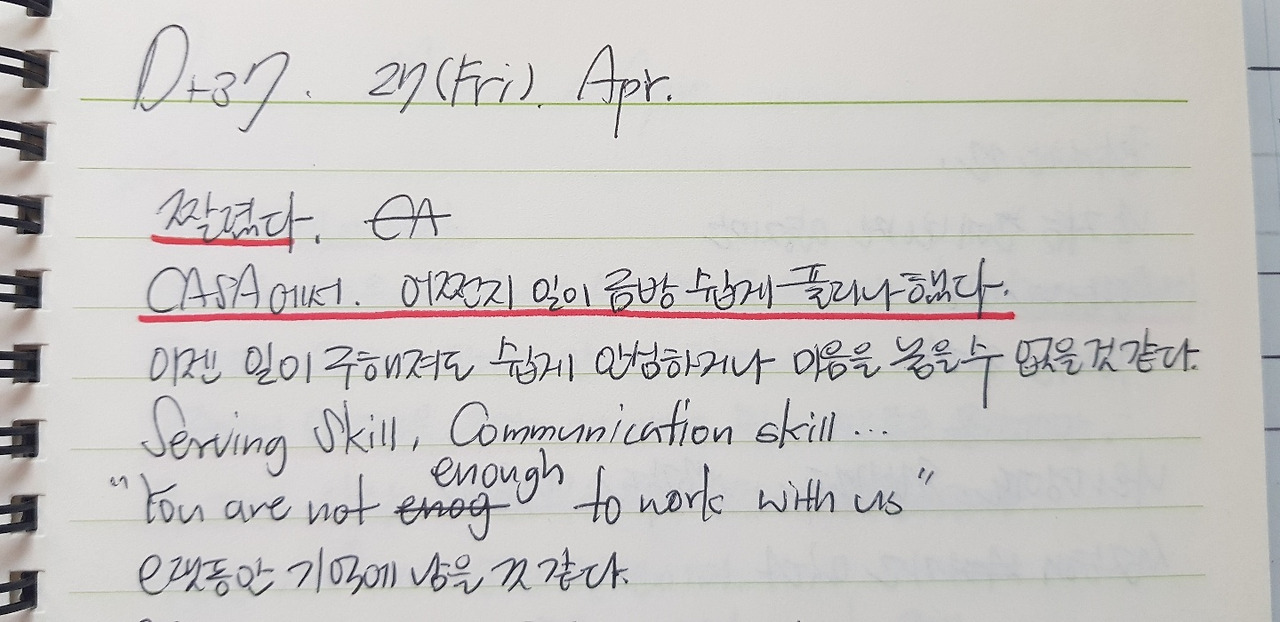 D+37. 27(Fri). Apr.
짤렸다. CA
CASA에서. 어쩐지 일이 금방 쉽게 풀리나 했다.
이젠 일이 구해져도 쉽게 안심하거나 마음을 놓을 수 없을 것 같다.
Serving Skill, Communication skill ...
"You are not enog enough to work with us"
오랫동안 기억에 남을 것 같다.